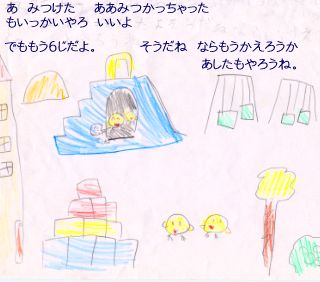 あ　みつけた　　ああみつかっちゃった
もいっかいやろ　いいよ
でももう6じだよ。　　　そうだね　ならもうかえろうか
あしたもやろうね。